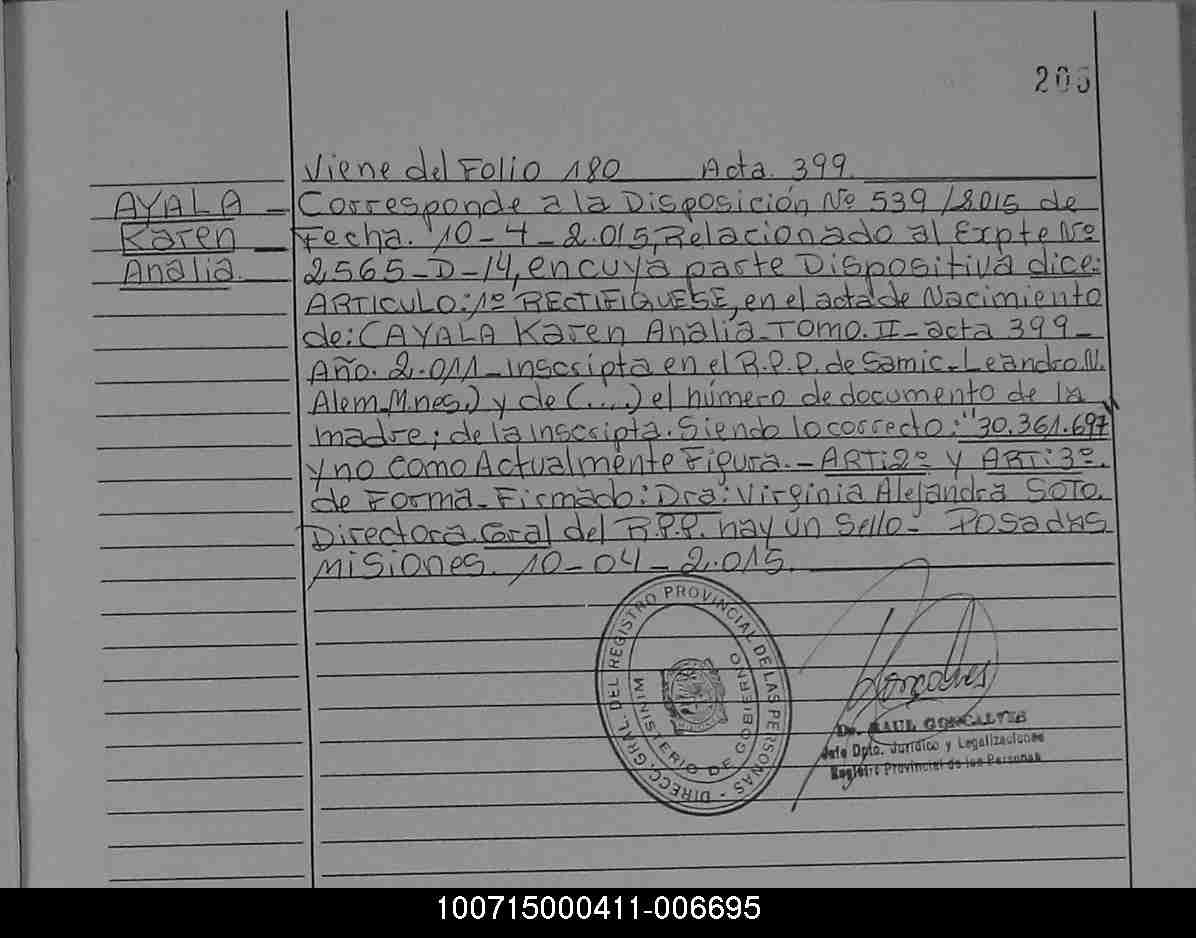 205
Viene del Folio 180 Acta. 399.
AYALA - Corresponde a la Disposición Nº 539/2015 de
Karen - Fecha. 10-4-2.015, Relacionado al Expte Nº
Analia. 2565-D-14, en cuya parte Dispositiva dice:
ARTICULO: 1º RECTIFIQUESE, en el acta de Nacimiento
de: (AYALA Karen Analia - TOMO. II - acta 399 -
Año. 2.011 - Inscripta en el R.P.P. de Samic - Leandro. N.
Alem, Mnes.) y de (....) el número de documento de la
madre; de la inscripta. Siendo lo correcto: "30.361.697
y no como Actualmente Figura. - ART: 2º y ART: 3º.
de Forma - Firmado: Dra: Virginia Alejandra SOTO.
Directora Gral del R.P.P. hay un Sello - Posadas
Misiones. 10-04-2.015.
DIRECC. GRAL. DEL REGISTRO PROVINCIAL DE LAS PERSONAS -
MINISTERIO DE GOBIERNO
Dr. RAUL GONCALVES
Jefe Dpto. Jurídico y Legalizaciones
Registro Provincial de las Personas
100715000411-006695